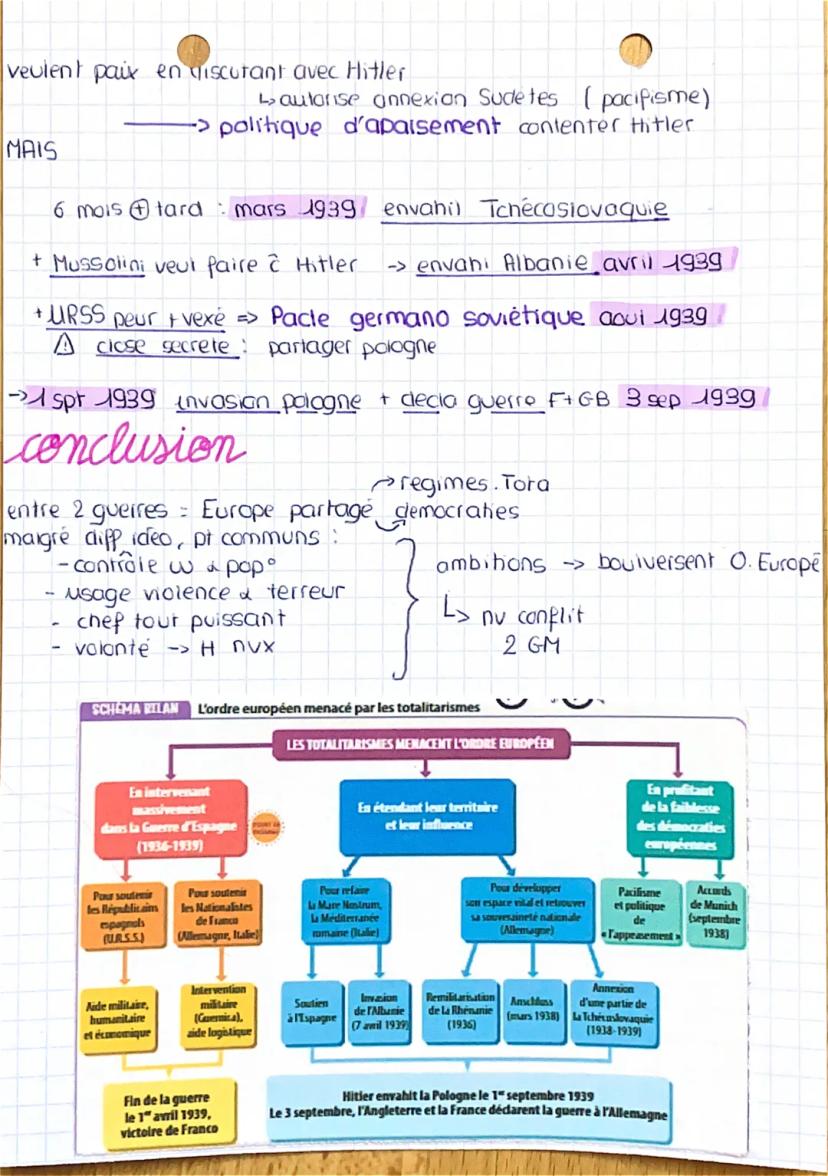 veulent paix en discutant avec Hitler
↳ autorise annexion Sudetes (pacifisme)
→ politique d'apaisement contenter Hitler
MAIS
6 mois ⊕ tard : mars 1939 envahit Tchécoslovaquie
+ Mussolini veut faire c̄ Hitler -> envahi Albanie avril 1939
+ URSS peur + vexé => Pacte germano soviétique aout 1939
⚠ close secrete : partager pologne
-> 1 spt 1939 invasion pologne + decla guerre F+GB 3 sep 1939
conclusion
regimes. Tota
entre 2 guerres = Europe partagé democraties
malgré diff ideo, pt communs :
- contrôle w α pop°
- usage violence α terreur
- chef tout puissant
- volonté -> H nvx
ambitions -> boulversent O. Europé
↳ nv conflit
2 GM
SCHÉMA BILAN L'ordre européen menacé par les totalitarismes
LES TOTALITARISMES MENACENT L'ORDRE EUROPÉEN
En intervenant
massivement
dans la Guerre d'Espagne
(1936-1939)
En étendant leur territoire
et leur influence
En profitant
de la faiblesse
des démocraties
européennes
Pour soutenir
les Républicains
espagnols
(U.R.S.S.)
Pour soutenir
les Nationalistes
de Franco
(Allemagne, Italie)
Pour refaire
la Mare Nostrum,
la Méditerranée
romaine (Italie)
Pour développer
son espace vital et retrouver
sa souveraineté nationale
(Allemagne)
Pacifisme
et politique
de
« l'appeasement »
Accords
de Munich
(septembre
1938)
Aide militaire,
humanitaire
et économique
Intervention
militaire
(Guernica),
aide logistique
Soutien
à l'Espagne
Invasion
de l'Albanie
(7 avril 1939)
Remilitarisation
de la Rhénanie
(1936)
Anschluss
(mars 1938)
Annexion
d'une partie de
la Tchécoslovaquie
(1938-1939)
Fin de la guerre
le 1er avril 1939,
victoire de Franco
Hitler envahit la Pologne le 1er septembre 1939
Le 3 septembre, l'Angleterre et la France déclarent la guerre à l'Allemagne